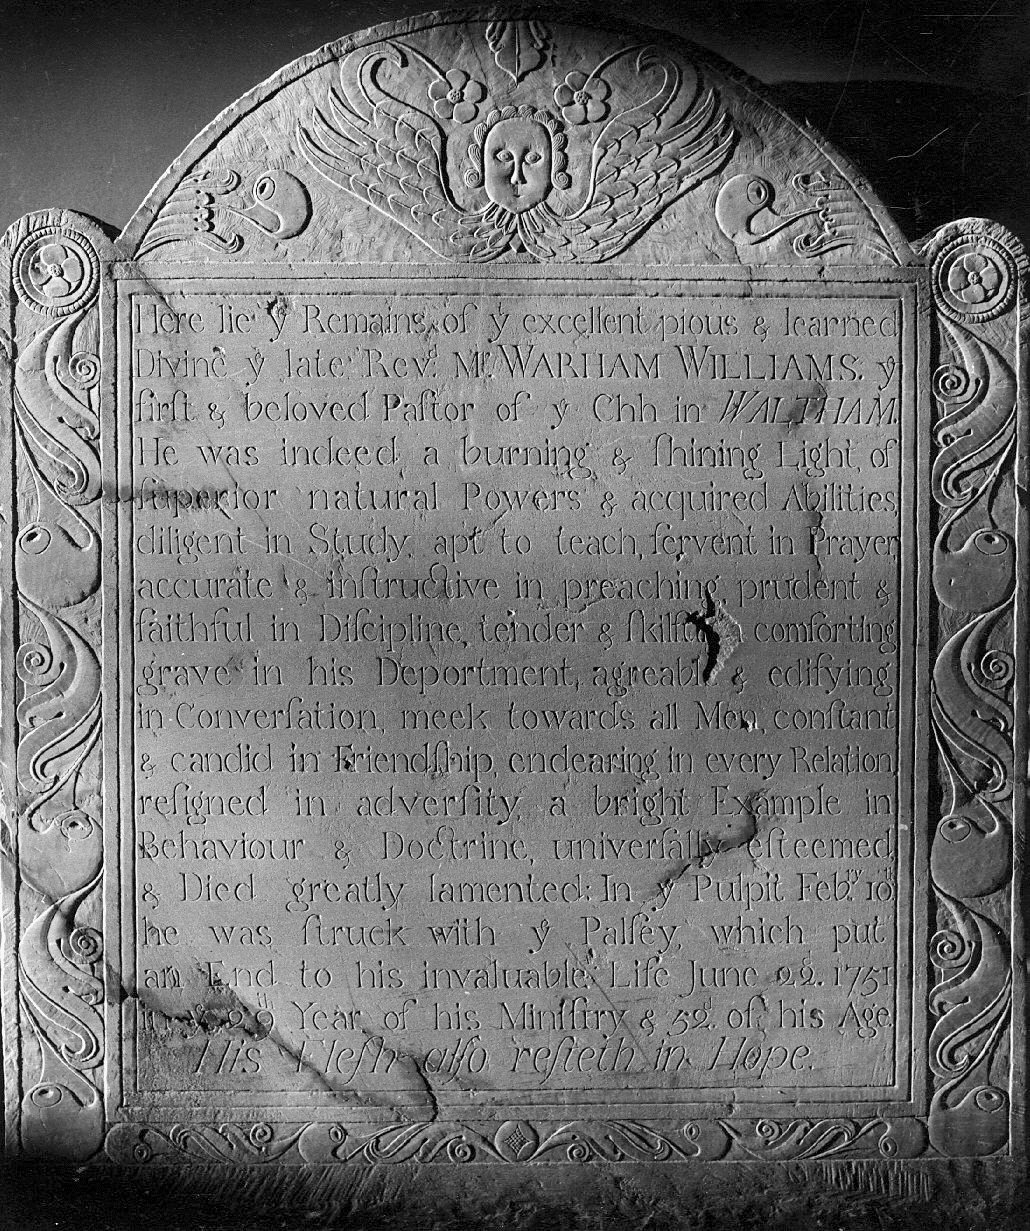 Here lie yͤ Remains of yͤ excellent pious & learned
Divine yͤ late Revᵈ. Mͬ. WARHAM WILLIAMS. yͤ
firſt & beloved Paſtor of yͤ Chh in WALTHAM.
He was indeed a burning & ſhining Light, of
ſuperior natural Powers & acquired Abilities,
diligent in Study, apt to teach, fervent in Prayer,
accurate & inſtructive in preaching, prudent &
faithful in Diſcipline, tender & ſkilful in comforting
grave in his Deportment, agreable & edifying
in Converſation, meek towards all Men, conſtant
& candid in Friendſhip, endearing in every Relation,
reſigned in adverſity, a bright Example in
Behaviour & Doctrine, univerſally eſteemed,
& Died greatly lamented: In yͤ Pulpit Febʳʸ. 10ᵗʰ
he was ſtruck with yͤ Palſey, which put
an End to his invaluable Life June 22. 1751
in yͤ 29ᵗʰ Year of his Miniſtry & 52ᵈ. of his Age.
His Fleſh alſo reſteth in Hope.